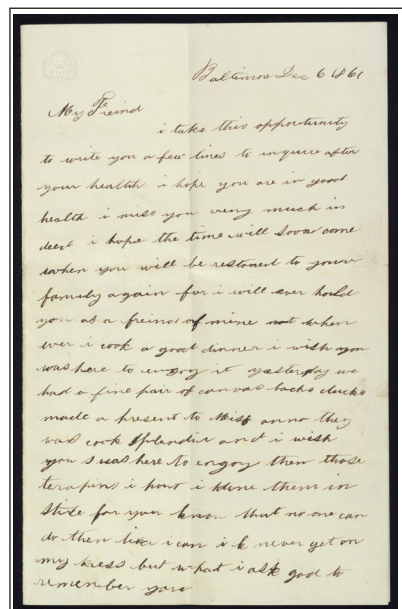 Baltimore Dec 6 1861
My Freind
i take this opportunity
to write you a few lines to inquire after
your health i hope you are in good
health i miss you very much in
deed i hope the time will soon come
when you will be restored to your
family again for i will ever hould
you as a freind of mine not when
ever i cook a good dinner i wish you
was here to enjoy it yesterday we
had a fine pair of canvas backs ducks
made a present to Miss anna they
was cook splendid and i wish
you was here to enjoy then those
terapins i i done them in
stile for your know that no one can
do then like i can i never get on
my but what i ask god to
remember you